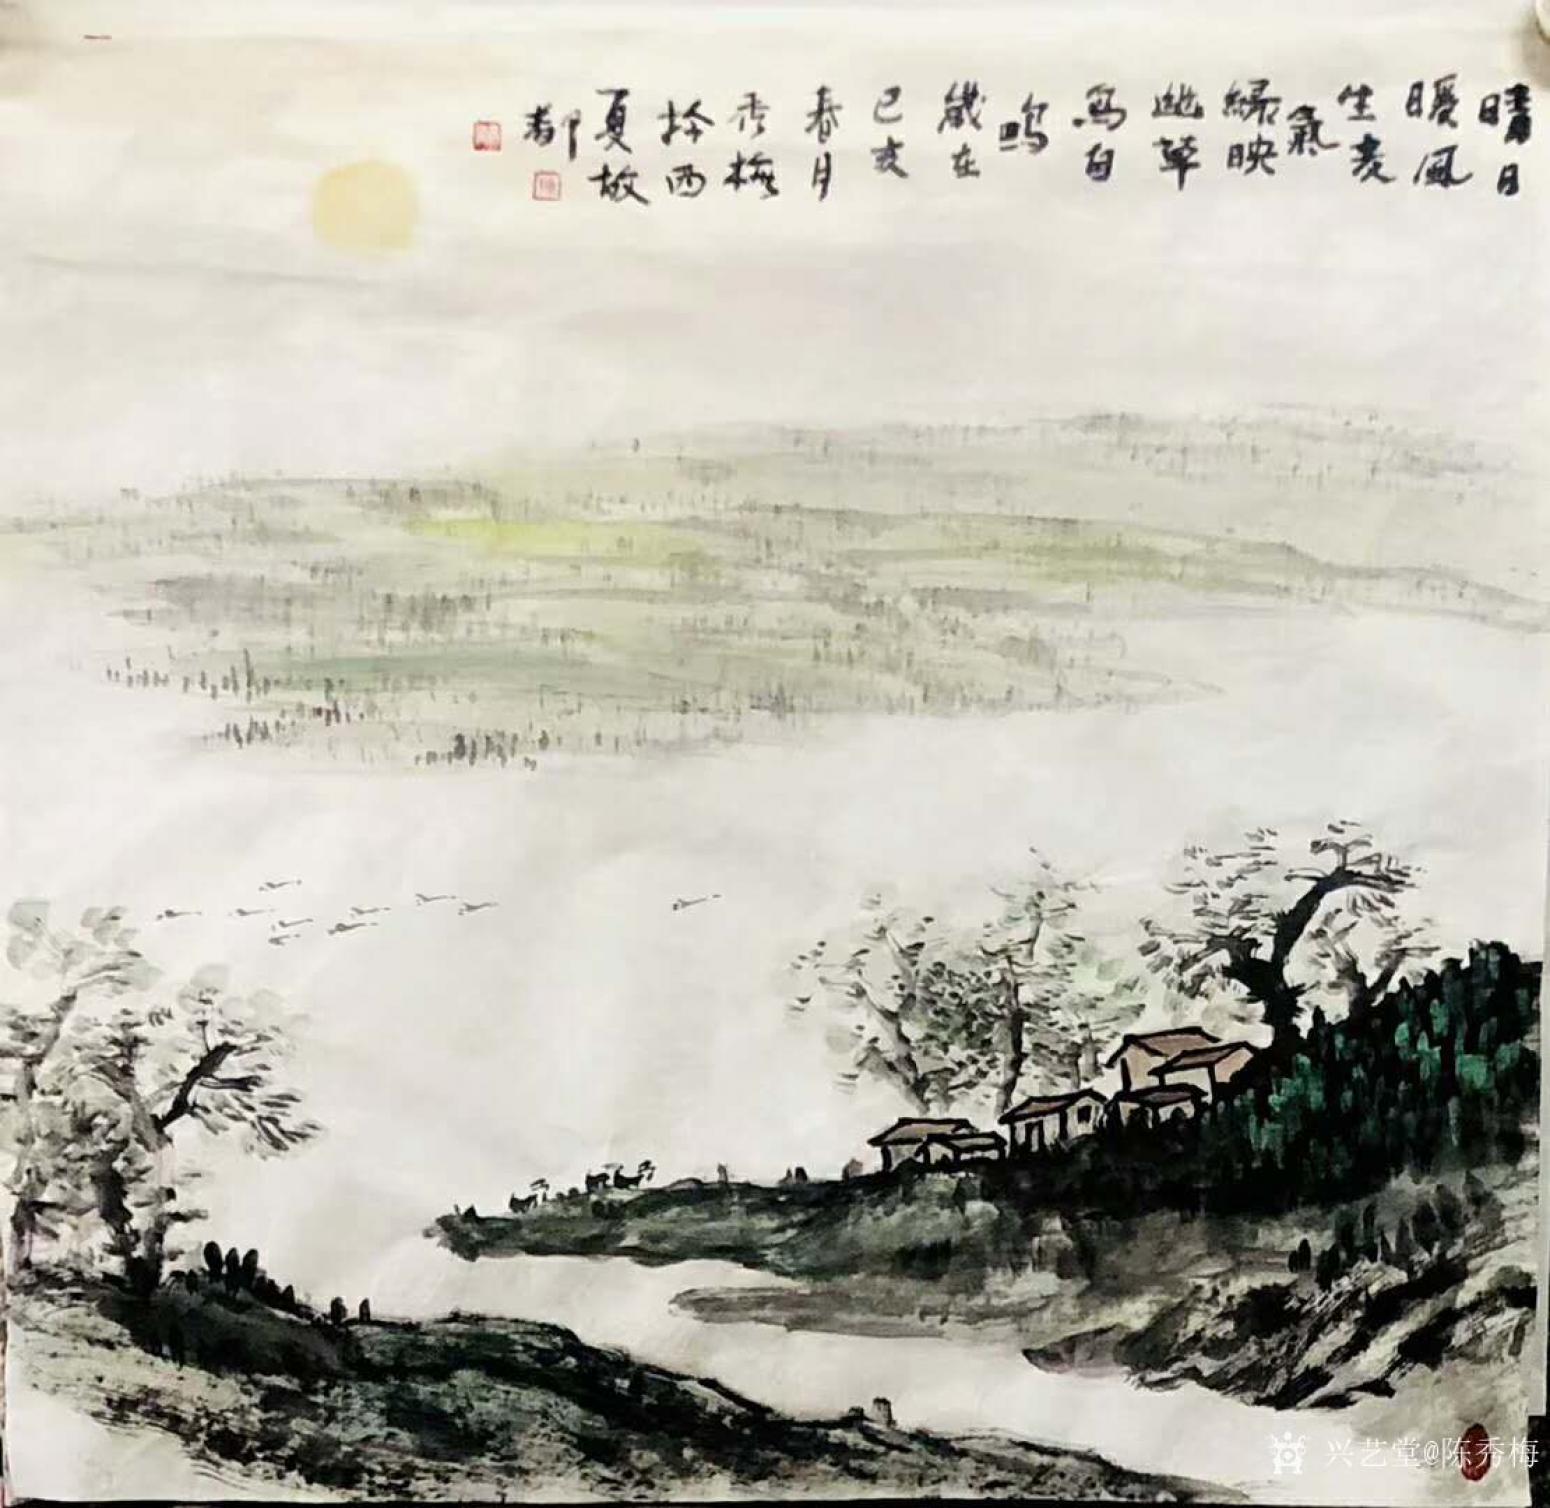 晴日
暖風
生麦
氣
緑映
幽草
鳥自
鳴
歲在
己亥
春月
秀梅
於西
夏故
都
兴艺堂@陈秀梅